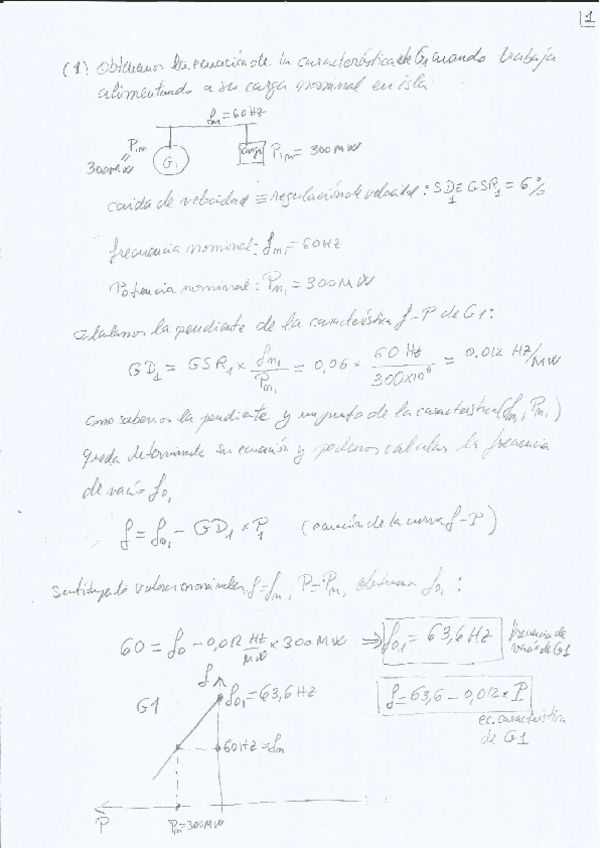 1
(1) Obtenemos la ecuación de la característica de G1 cuando trabaja
alimentando a su carga nominal en isla.
fm = 60 Hz
P1m
300MW
G1
carga
P1m = 300MW
caída de velocidad ≡ regulación de velocidad: SD1 ≡ GSR1 = 6%
frecuencia nominal: fm1 = 60Hz
Potencia nominal: Pm1 = 300MW
la pendiente de la característica f-P de G1:
GD1 = GSR1 × fm1/Pm1 = 0,06 × 60 Hz/300×10⁶ = 0.012 HZ/MW
como sabemos la pendiente y un punto de la característica (fm1, Pm1)
queda determinada su ecuación y podemos calcular la frecuencia
de vacío f01
f = f01 - GD1 × P1 (ecuación de la curva f-P)
valores nominales, f=fm, P=Pm, f01:
60 = f0 - 0,012 HZ/MW × 300MW ⇒ f01 = 63,6 HZ
frecuencia de
vacío de G1
f
G1
f01 = 63,6 HZ
f = 63,6 - 0,012 × P
ec. característica
de G1
60HZ = fm
P
Pm = 300MW